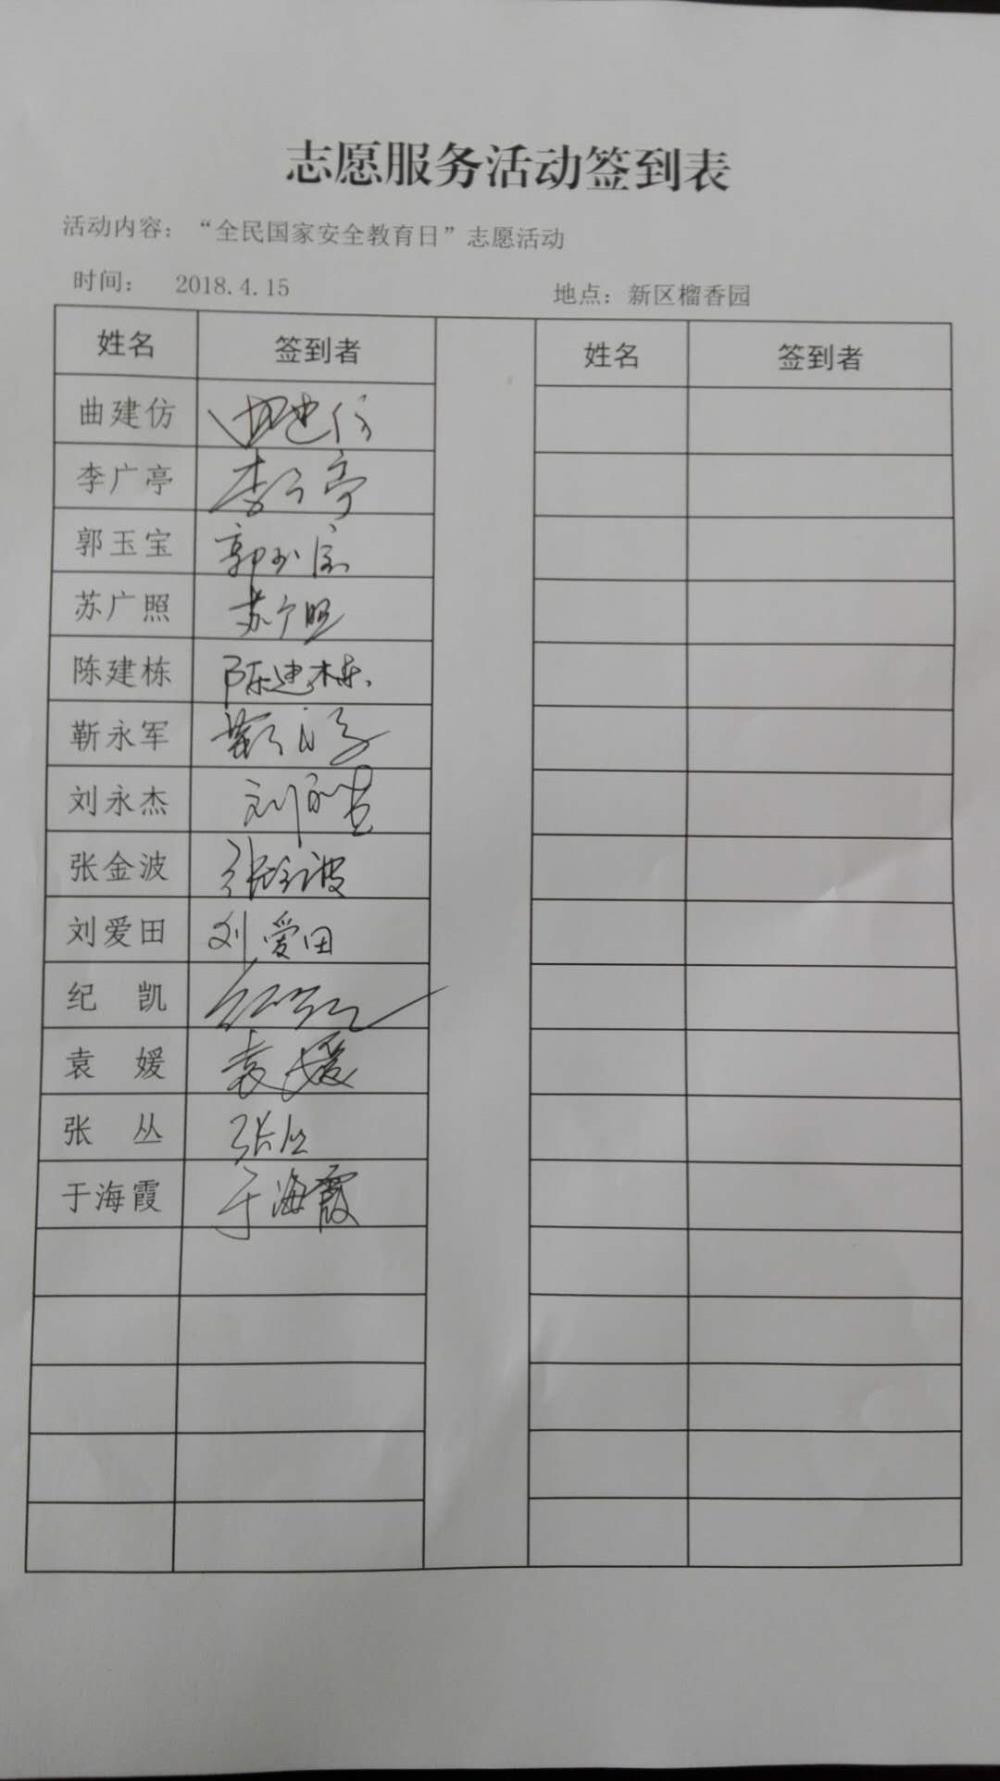 志愿服务活动签到表
活动内容：“全民国家安全教育日”志愿活动
时间： 2018.4.15 地点：新区榴香园
姓名 签到者 姓名 签到者
曲建仿 曲建仿
李广亭 李广亭
郭玉宝 郭玉宝
苏广照 苏广照
陈建栋 陈建栋
靳永军 靳永军
刘永杰 刘永杰
张金波 张金波
刘爱田 刘爱田
纪 凯 纪凯
袁 媛 袁媛
张 丛 张丛
于海霞 于海霞